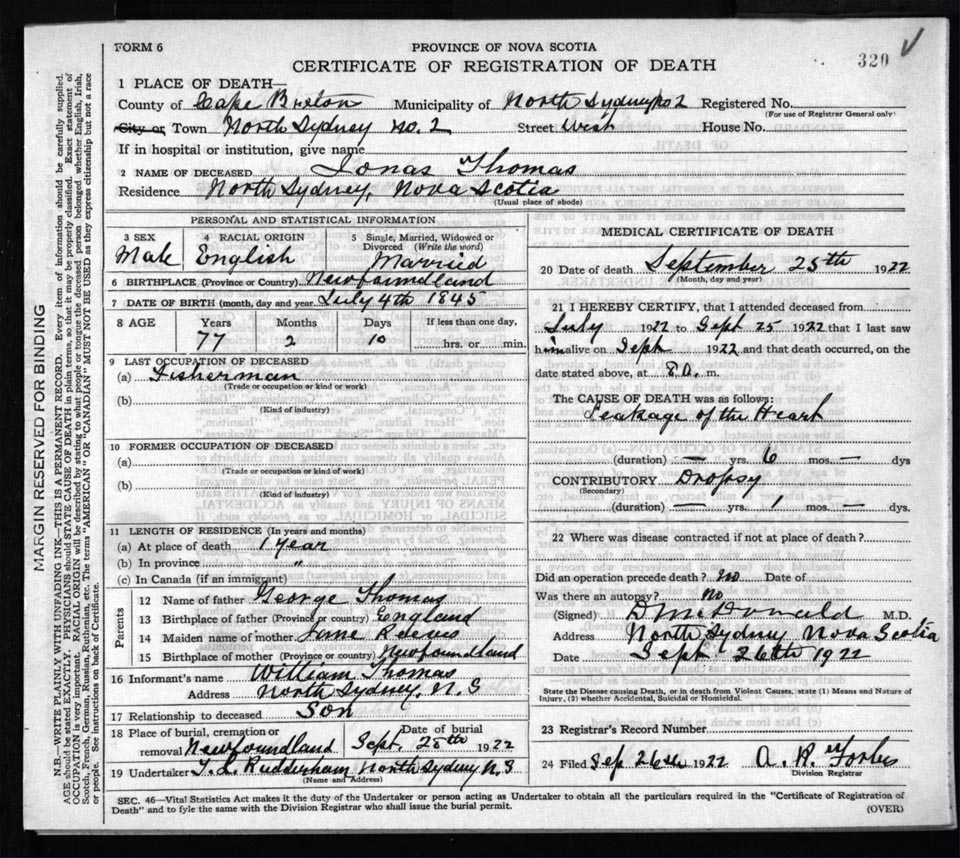 FORM 6
PROVINCE OF NOVA SCOTIA
CERTIFICATE OF REGISTRATION OF DEATH
320
1 PLACE OF DEATH—
County of Cape Breton Municipality of North Sydney No 2 Registered No.
(For use of Registrar General only)
City or Town North Sydney No. 2 Street West House No.
If in hospital or institution, give name
2 NAME OF DECEASED Jonas Thomas
Residence North Sydney, Nova Scotia
(Usual place of abode)
PERSONAL AND STATISTICAL INFORMATION
3 SEX 4 RACIAL ORIGIN 5 Single, Married, Widowed or Divorced (Write the word)
Male English Married
6 BIRTHPLACE (Province or Country) Newfoundland
7 DATE OF BIRTH (month, day and year) July 4th 1845
8 AGE Years Months Days If less than one day,
77 2 10 hrs. or min.
9 LAST OCCUPATION OF DECEASED
(a) Fisherman
(Trade or occupation or kind of work)
(b)
(Kind of industry)
10 FORMER OCCUPATION OF DECEASED
(a)
(Trade or occupation or kind of work)
(b)
(Kind of industry)
11 LENGTH OF RESIDENCE (In years and months)
(a) At place of death 1 year
(b) In province "
(c) In Canada (if an immigrant)
Parents
12 Name of father George Thomas
13 Birthplace of father (Province or country) England
14 Maiden name of mother Jane
15 Birthplace of mother (Province or country) Newfoundland
16 Informant's name William Thomas
Address North Sydney, N. S
17 Relationship to deceased Son
18 Place of burial, cremation or removal Newfoundland Date of burial Sept. 28th 1922
19 Undertaker T. L. Rudderham North Sydney N. S
(Name and Address)
MEDICAL CERTIFICATE OF DEATH
20 Date of death September 25th 1922
(Month, day and year)
21 I HEREBY CERTIFY, that I attended deceased from
July 1922 to Sept 25 1922 that I last saw
him alive on Sept 1922 and that death occurred, on the
date stated above, at 8 a. m.
The CAUSE OF DEATH was as follows:
Leakage of the Heart
(duration) — yrs. 6 mos. — dys
CONTRIBUTORY Dropsy
(Secondary)
(duration) — yrs. 1 mos. — dys.
22 Where was disease contracted if not at place of death?
Did an operation precede death? no Date of
Was there an autopsy? no
(Signed) D McDonald M.D.
Address North Sydney Nova Scotia
Date Sept 26th 1922
State the Disease causing Death, or in death from Violent Causes, state (1) Means and Nature of
Injury, (2) whether Accidental, Suicidal or Homicidal.
23 Registrar's Record Number
24 Filed Sep 26th 1922 A. R. Forbes
Division Registrar
SEC. 46—Vital Statistics Act makes it the duty of the Undertaker or person acting as Undertaker to obtain all the particulars required in the "Certificate of Registration of
Death" and to fyle the same with the Division Registrar who shall issue the burial permit.
(OVER)
MARGIN RESERVED FOR BINDING
N.B.—WRITE PLAINLY WITH UNFADING INK—THIS IS A PERMANENT RECORD. Every item of information should be carefully supplied.
AGE should be stated EXACTLY. PHYSICIANS should STATE CAUSE OF DEATH in plain terms, so that it may be properly classified. Exact statement of
OCCUPATION is very important. RACIAL ORIGIN will be described by stating to what people or tongue the deceased person belonged whether English, Irish,
Scotch, French, German, Russian, Ruthenian, etc. The terms "AMERICAN" OR "CANADIAN" MUST NOT BE USED as they express citizenship but not a race
or people. See instructions on back of Certificate.